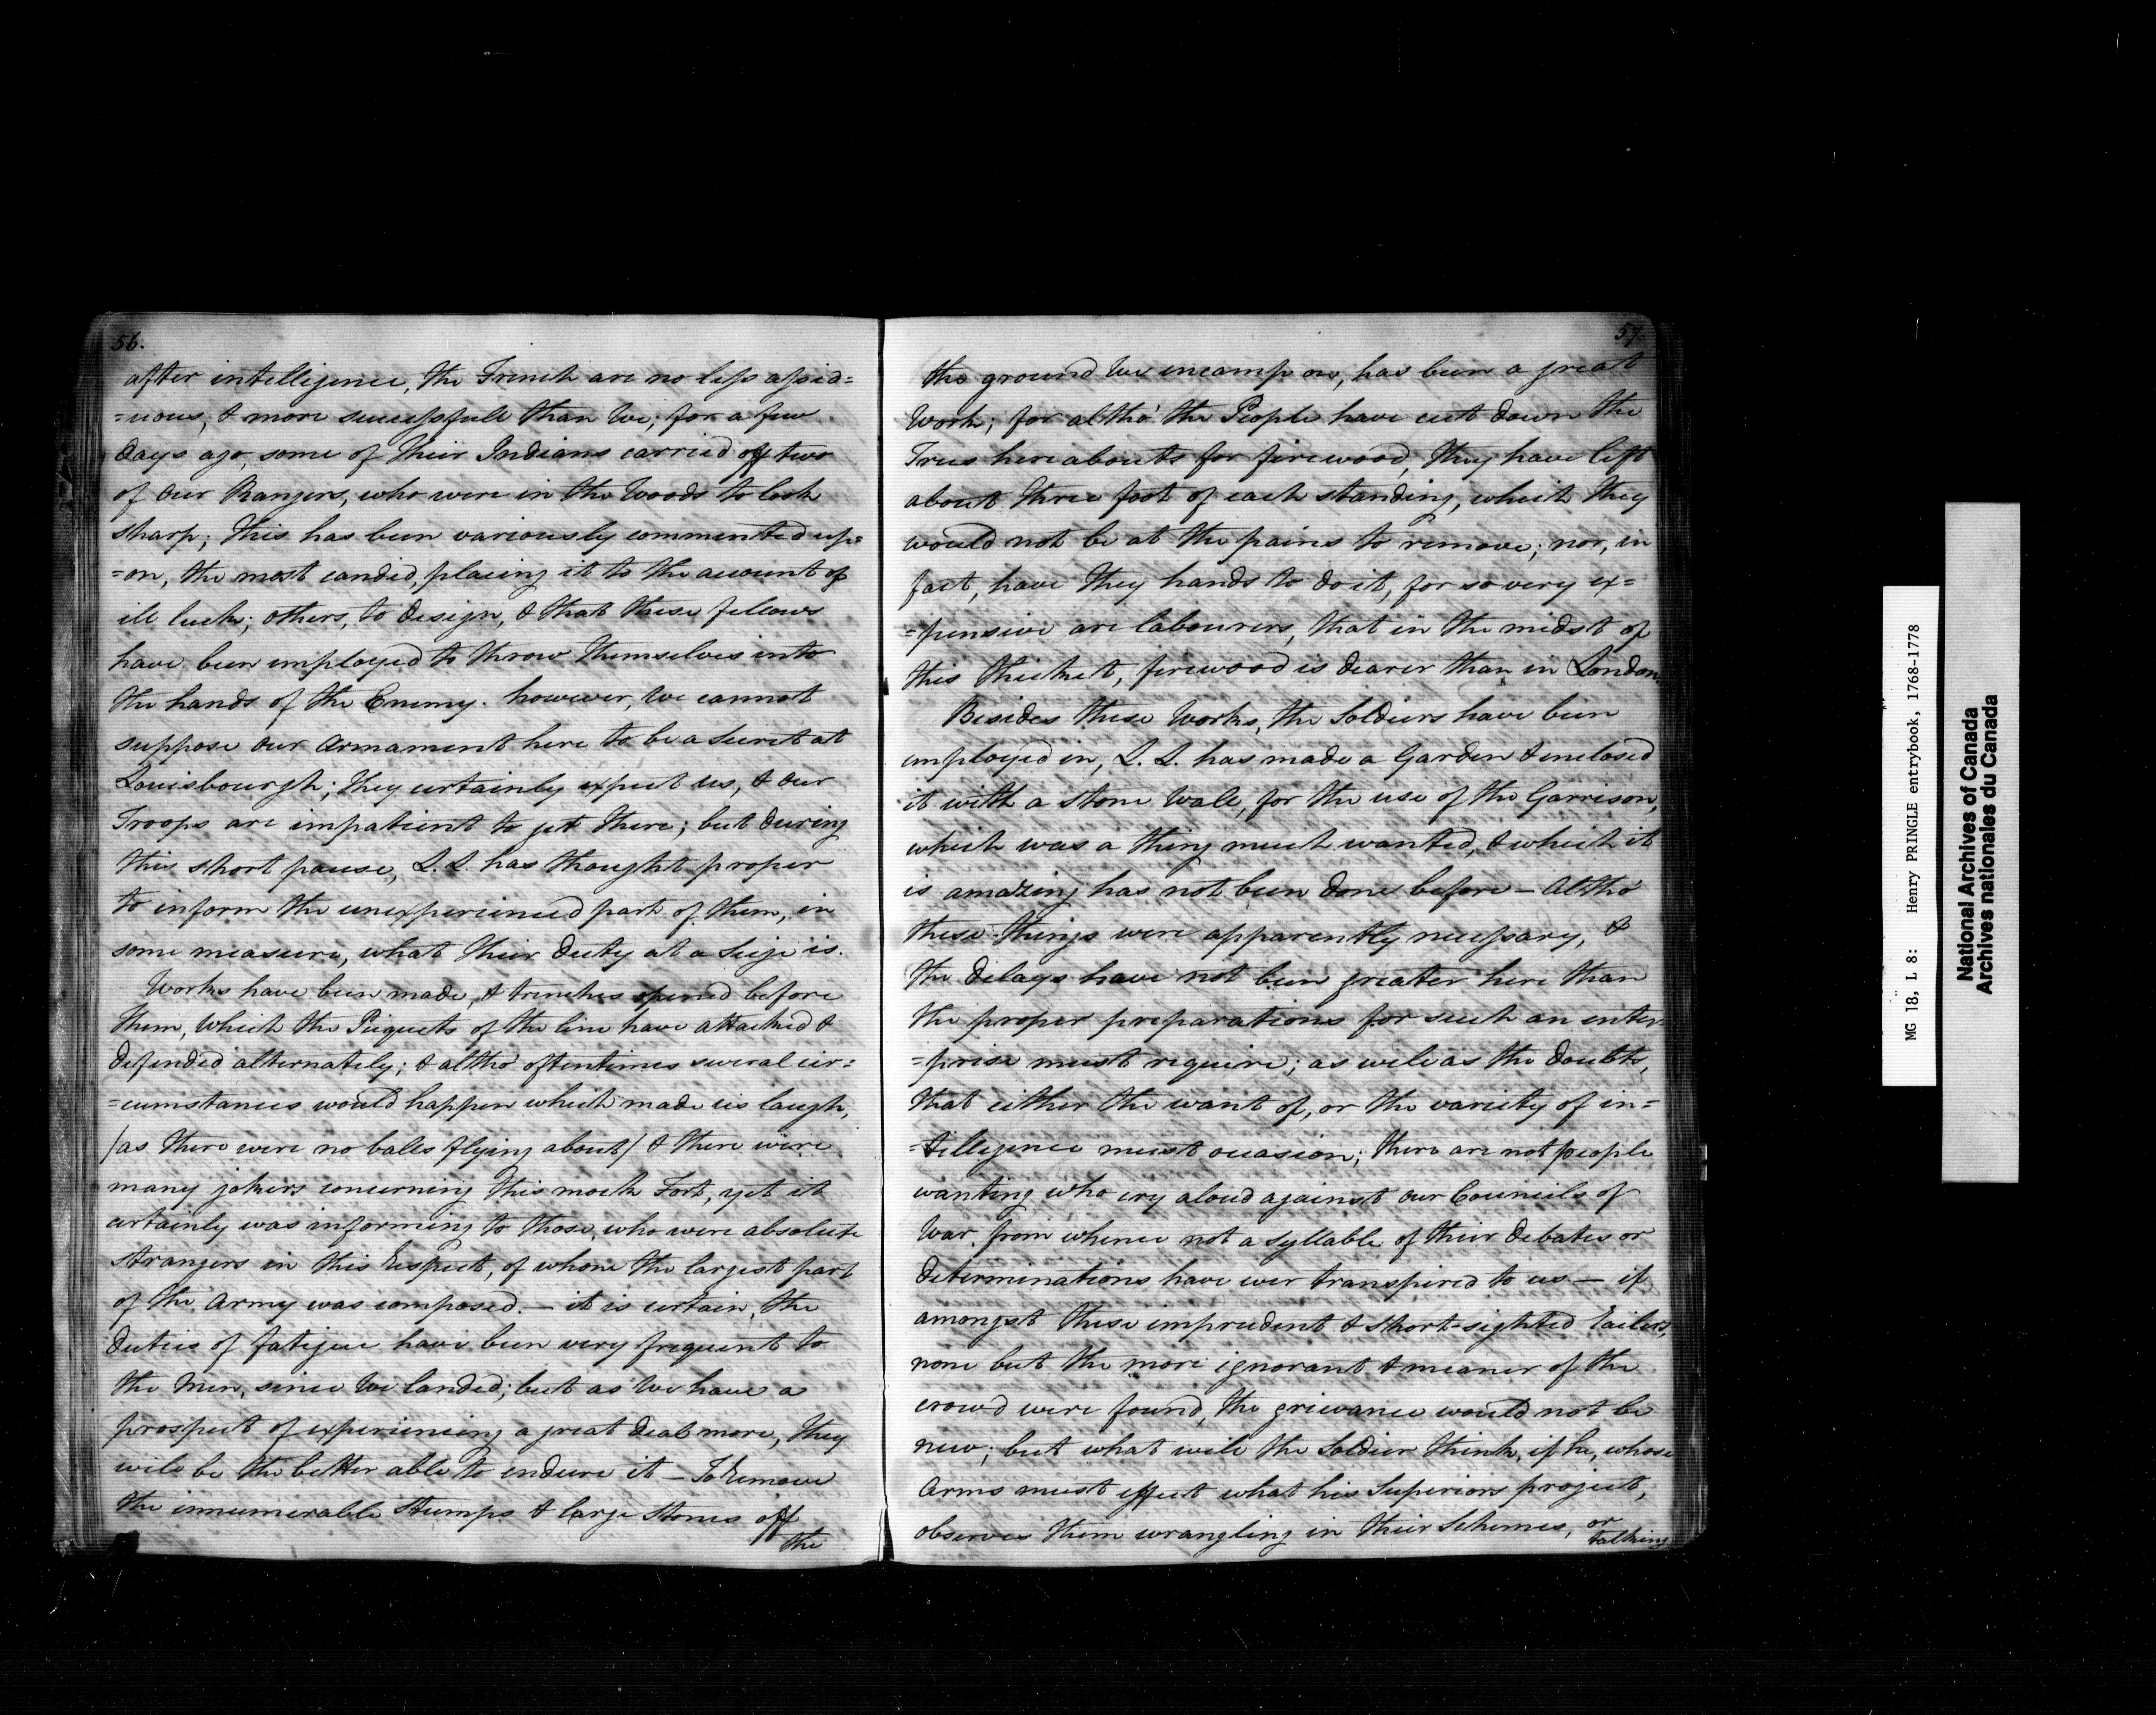 56.
after intelligence, the French are no less assid=
=uous, & more successfull than We; for a few
days ago, some of their Indians carried off two
of our Rangers, who were in the Woods to look
sharp; this has been variously commented up=
=on, the most candid, placing it to the account of
ill luck; others, to design, & that these fellows
have been employed to throw themselves into
the hands of the Enemy. however, We cannot
suppose our Armament here to be a secret at
Louisbourgh; they certainly expect us, & our
Troops are impatient to get there; but during
this short pause, L. L. has thought proper
to inform the unexperienced part of them, in
some measure, what their duty at a Seige is.
Works have been made, & trenches opened before
them, Which the Picquets of the line have attacked &
defended alternately; & altho' oftentimes several cir=
=cumstances would happen which made us laugh,
/as there were no balls flying about/ & there were
many jokers concerning this mock Fort, yet it
certainly was informing to those, who were absolute
strangers in this respect, of whom the largest part
of the Army was composed. — it is certain, the
duties of fatigue have been very frequent to
the Men, since We landed; but as We have a
prospect of experiencing a great deal more, they
will be the better able to endure it — To remove
the innumerable Stumps & large Stones off
the
57.
the ground We incamp on, has been a great
Work; for altho' the People have cut down the
Trees hereabouts for firewood, they have left
about three foot of each standing, which they
would not be at the pains to remove; nor, in
fact, have they hands to do it, for so very ex=
=pensive are labourers, that in the midst of
this thicket, firewood is dearer than in London.
Besides these Works, the Soldiers have been
employed in, L. L. has made a Garden & enclosed
it with a stone Wall, for the use of the Garrison,
which was a thing much wanted, & which it
is amazing has not been done before — Altho'
these things were apparently necessary, &
the delays have not been greater here than
the proper preparations for such an enter=
=prise must require; as well as the doubts,
that either the want of, or the variety of in=
=telligence must occasion; there are not people
wanting who cry aloud against our Councils of
War, from whence not a syllable of their debates or
determinations have ever transpired to us — if
amongst these imprudent & short-sighted railers,
none but the more ignorant & meaner of the
crowd were found, the grievance would not be
new; but what will the Soldier think, if he, whose
Arms must effect what his Superiors project,
observes them wrangling in their Schemes, or
talking
MG 18, L 8: Henry PRINGLE entrybook, 1768-1778
National Archives of Canada
Archives nationales du Canada